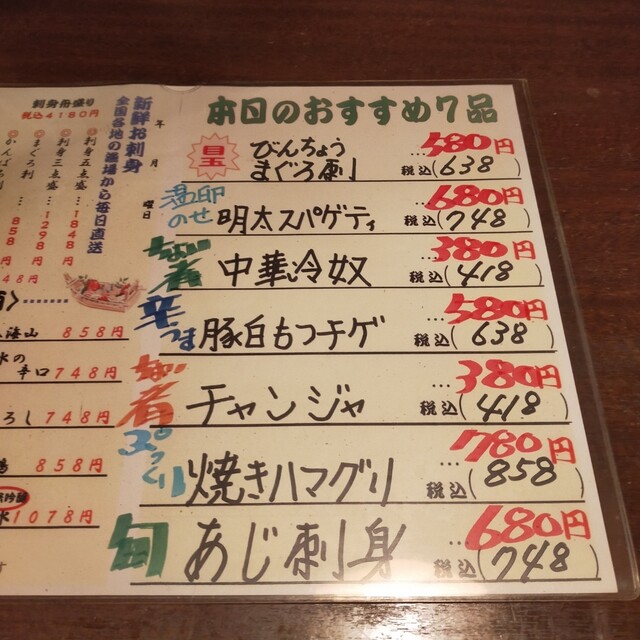 本日のおすすめ7品
目玉 びんちょう
まぐろ刺 …580円
税込(638)
温卵
のせ 明太スパゲティ …680円
税込(748)
中華冷奴 …380円
税込(418)
辛うま 豚白もつチゲ …580円
税込(638)
チャンジャ …380円
税込(418)
ぷっくり 焼きハマグリ …780円
税込(858)
旬 あじ刺身 …680円
税込(748)
年
月
曜日
新鮮お刺身
全国各地の漁場から毎日直送
刺身舟盛り
税込4180円
刺身五点盛 1848円
刺身三点盛 1298円
まぐろ刺
858円
48円
海山 858円
水の
辛口 748円
ろし 748円
858円
水 1078円